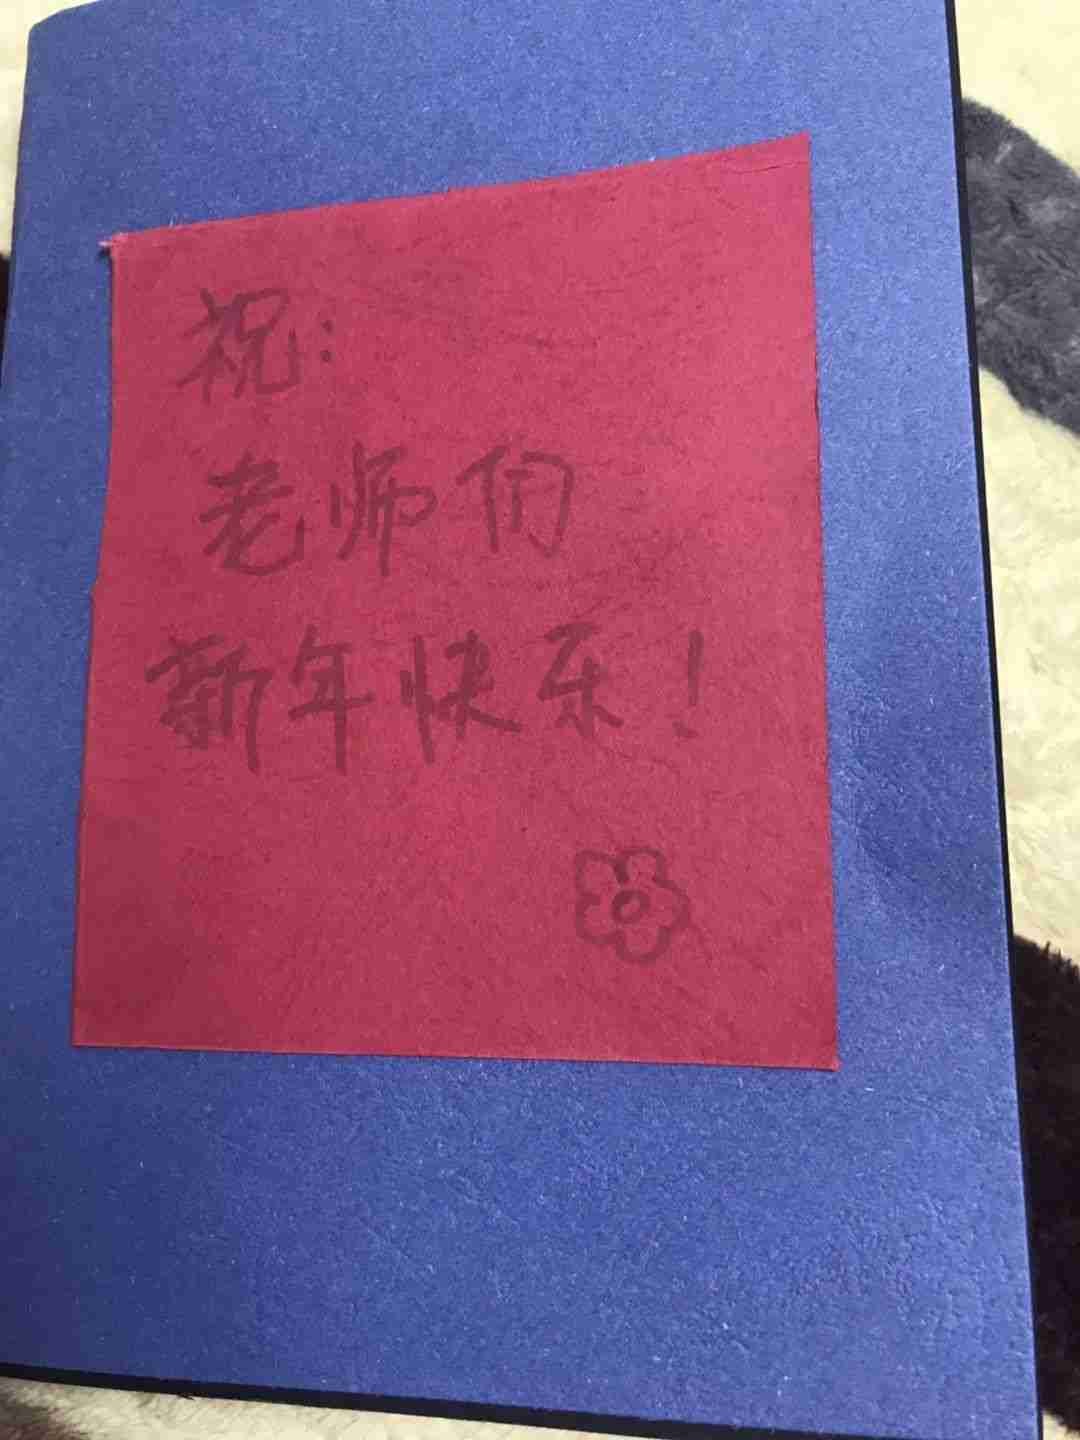 祝:
老师们
新年快乐!